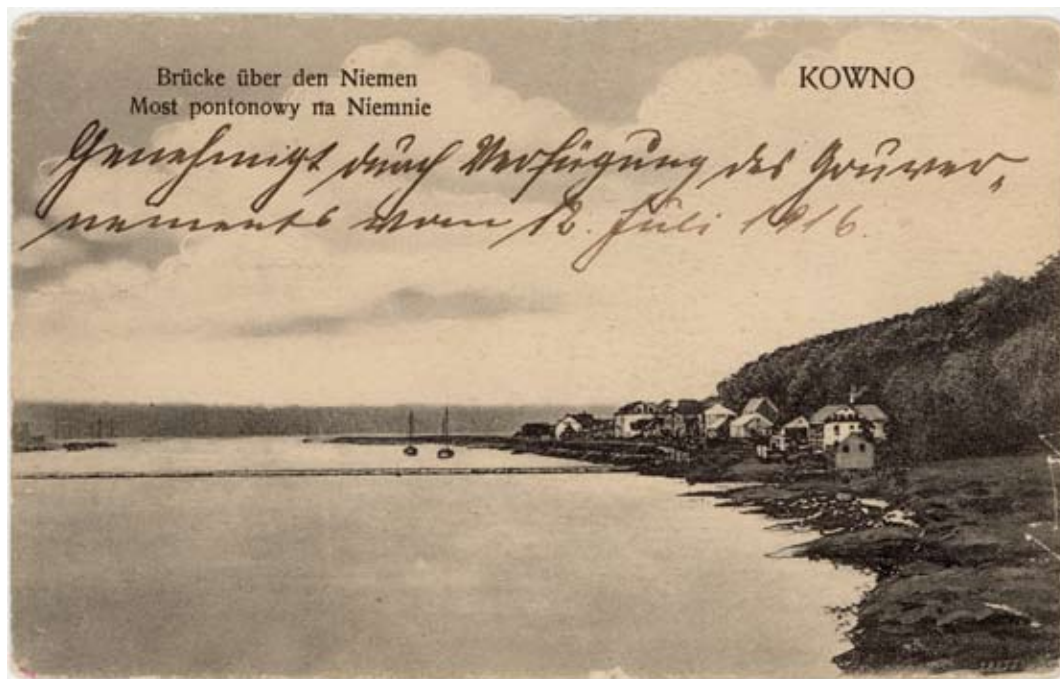 Brücke über den Niemen
Most pontonowy na Niemnie
KOWNO
Genehmigt durch Verfügung des Gouver-
nements vom 12. Juli 1916.